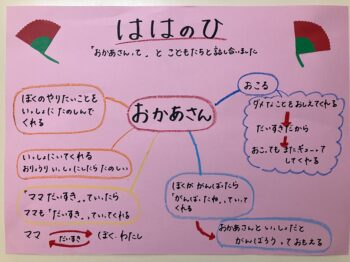 ははのひ
「おかあさんって」と こどもたちと話し合いました
おかあさん
ぼくのやりたいことを
いっしょに たのしんで
くれる
いっしょにいてくれる
おりょうり いっしょにしたら たのしい
「ママ だいすき」っていったら
ママも「だいすき」っていってくれる
ママ
だいすき
ぼく、わたし
おこる
ダメなことをおしえてくれる
だいすきだから
おこってもまたギューって
してくれる
ぼくが がんばったら
「がんばったね」っていって
くれる
おかあさんと いっしょだと
がんばろうっておもえる